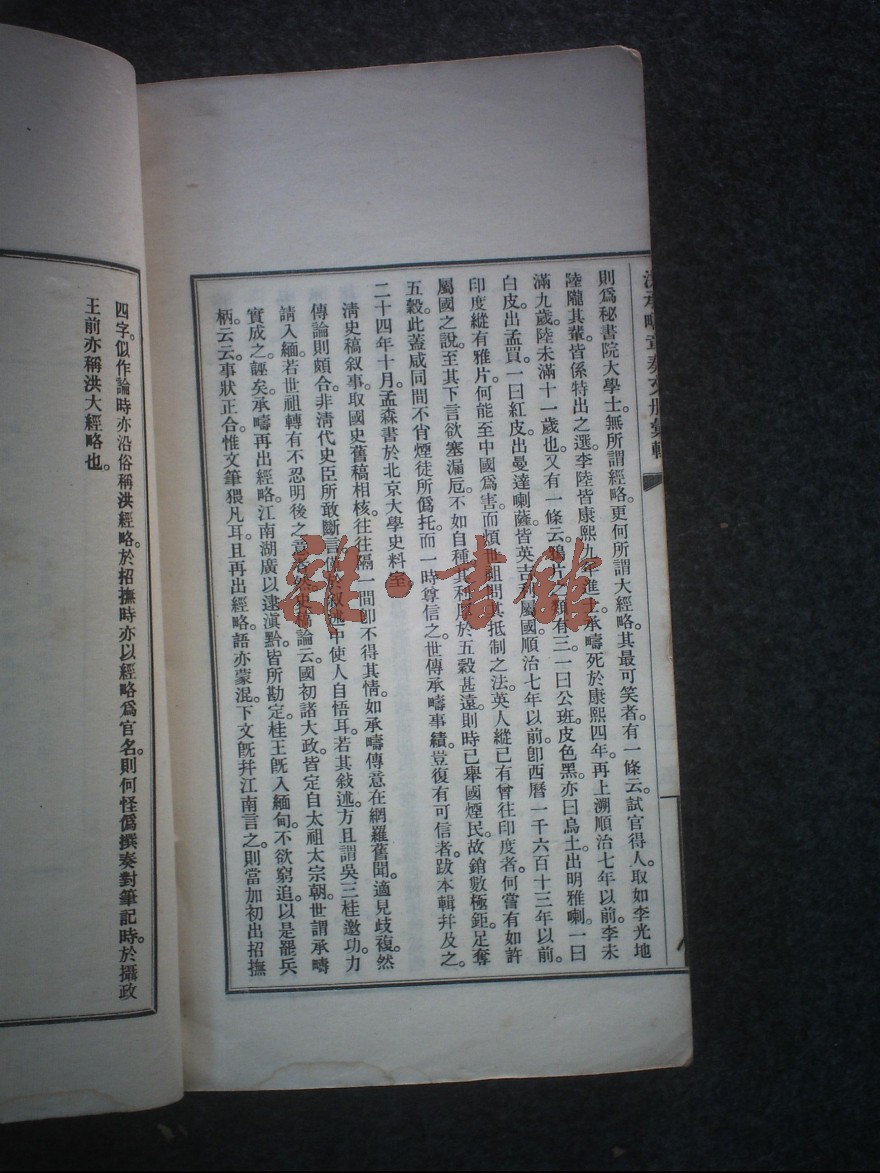 洪承疇章奏文册彙輯
則爲秘書院大學士。無所謂經略。更何所謂大經略。其最可笑者。有一條云。試官得人。取如李光地
陸隴其輩。皆係特出之選。李陸皆康熙九年進士。承疇死於康熙四年。再上溯順治七年以前。李未
滿九歲。陸未滿十一歲也。又有一條云。鴉片之類有三。一曰公班。皮色黑。亦曰烏土。出明雅喇。一曰
白皮。出孟買。一曰紅皮。出曼達喇薩。皆英吉利屬國。順治七年以前。卽西曆一千六百十三年以前。
印度縱有雅片。何能至中國爲害。而煩世祖問其抵制之法。英人縱已有曾往印度者。何嘗有如許
屬國之說。至其下言欲塞漏卮。不如自種其利厚於五穀甚遠。則時已舉國煙民。故銷數極鉅。足奪
五穀。此蓋咸同間不肖煙徒所爲托。而一時尊信之。世傳承疇事績。豈復有可信者。跋本輯幷及之。
二十四年十月。孟森書於北京大學史料室。
清史稿叙事。取國史舊稿相核。往往隔一間卽不得其情。如承疇傳意在網羅舊聞。適見歧複。然
傳論則頗合。非清代史臣所敢斷言。但於叙述中使人自悟耳。若其敍述。方且謂吳三桂邀功。力
請入緬。若世祖轉有不忍明後之意者。然史稿論云。國初諸大政。皆定自太祖太宗朝。世謂承疇
實成之。誣矣。承疇再出經略。江南湖廣以逮滇黔。皆所勘定。桂王旣入緬甸。不欲窮追。以是罷兵
柄。云云。事狀正合。惟文筆猥凡耳。且再出經略。語亦蒙混。下文旣幷江南言之。則當加初出招撫
四字。似作論時亦沿俗稱洪經略。於招撫時亦以經略爲官名。則何怪僞撰奏對筆記時。於攝政
王前亦稱洪大經略也。
雜·書館